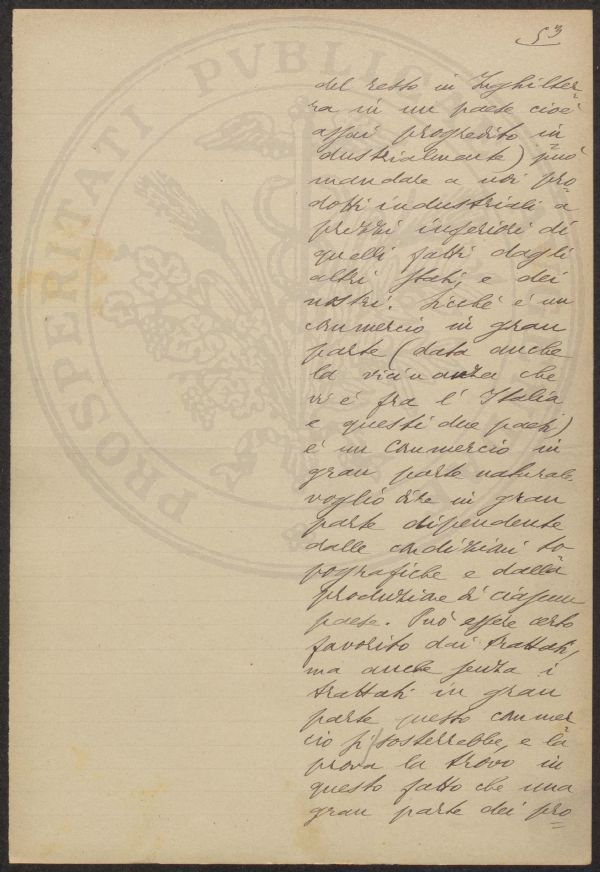 53
PROSPERITATI PVBLIC
del resto in Inghilter=
ra in un paese cioè
assai progredito in
dustrialmente) può
mandare a noi pro
dotti industriali a
prezzi inferiori di
quelli fatti dagli
altri Stati, e dei
nostri. Sicché è un
commercio in gran
parte (data anche
la vicinanza che
vi è fra l'Italia
e questi due paesi)
è un commercio in
gran parte naturale,
voglio dire in gran
parte dipendente
dalle condizioni to
pografiche e dalla
produzione di ciascun
paese. Può essere certo
favorito dai trattati,
ma anche senza i
trattati in gran
parte questo commer
cio si sosterrebbe, e la
prova la trovo in
questo fatto che una
gran parte dei pro=